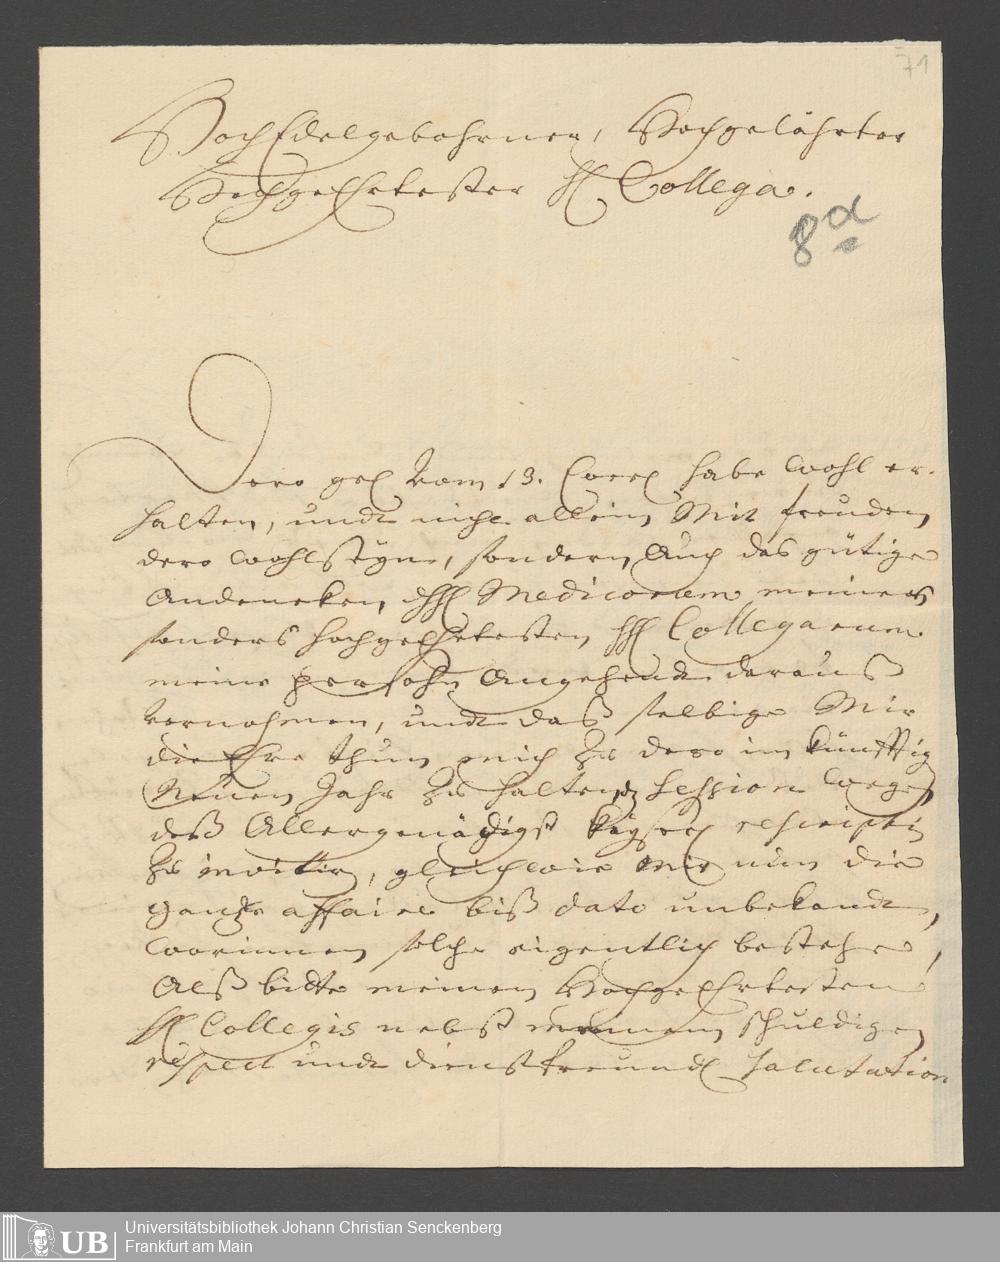 71
HochEdelgebohrner, Hochgelährter
HochgeEhrtester H Collega.
8a
Dero gel vom 13. Curr habe wohl er-
halten, undt nicht allein Mit freuden
dero wohlseyn, sondern Auch das gütige
Andencken HH Medicorum meiner
sonders hochgeEhrtesten HH Collegarum
meine persohn Angehendt daraus
vernohmen, undt daß selbige Mir
die Ehre thun mich zu dero im künfftig
Neuen Jahr zu haltender Session wegen
deß Allergnädigst Kayserl rescripti
zu invitir, gleichwie Mir nun die
gantze affaire biß dato unbekandt,
worinnen solche eigentlich bestehe,
Alß bitte meinen HochgeEhrtesten
HH Collegis nebst meinem schuldigen
respect undt dienstfreundl salutation
UB
Universitätsbibliothek Johann Christian Senckenberg
Frankfurt am Main